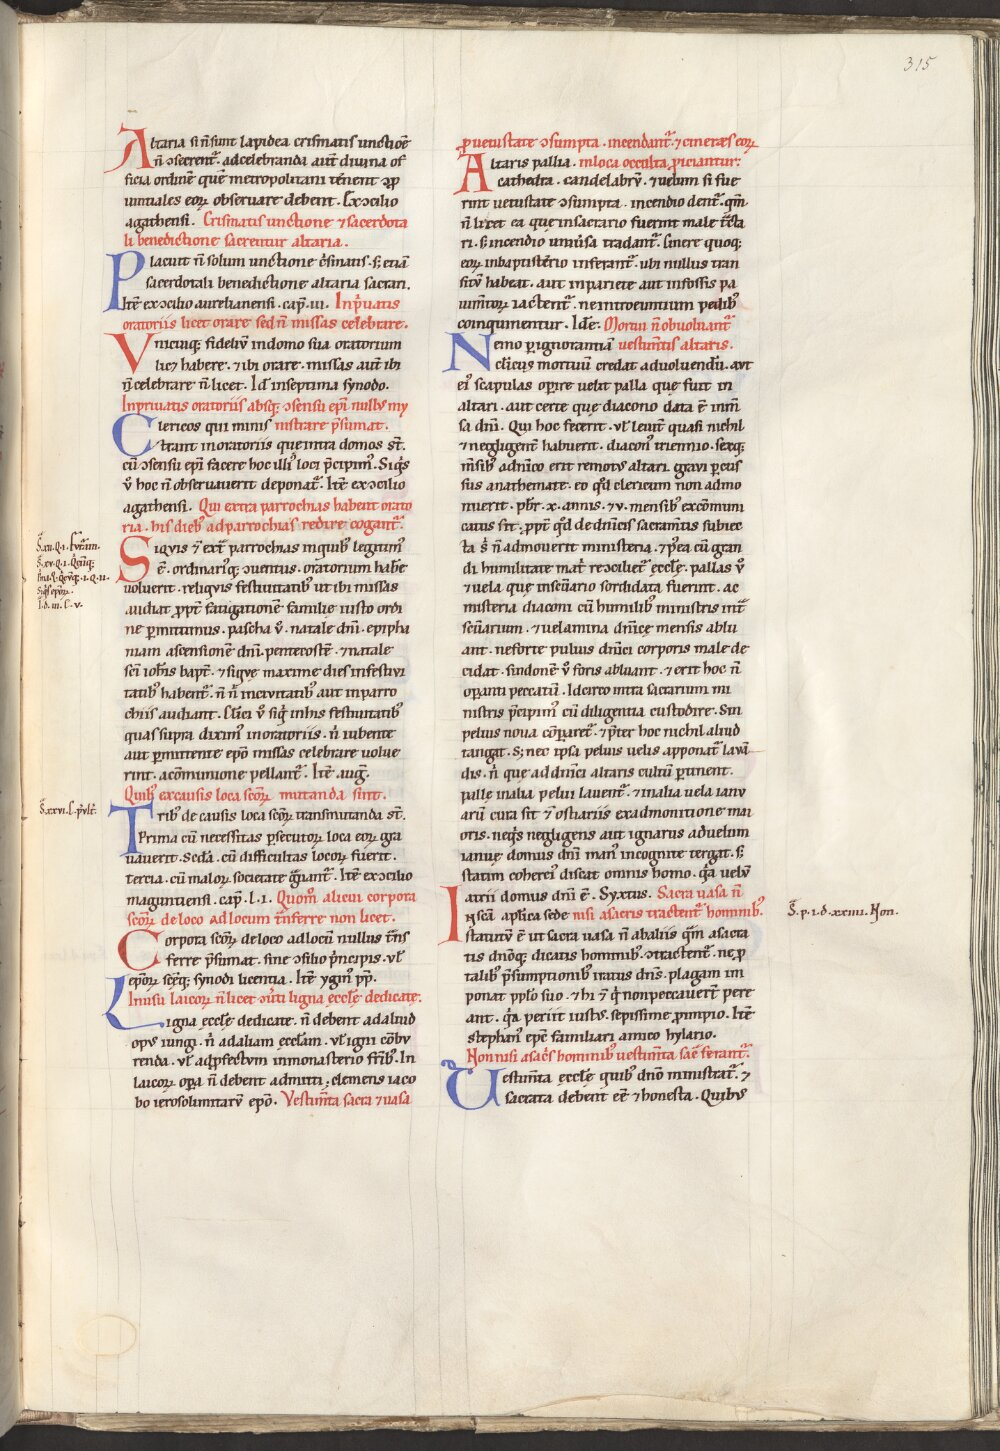 315
Altaria si n̄ sunt lapidea crismatis unctiōe
n̄ ɔsecrent᷑. ad celebranda aut̄ diuina of
ficia ordinē quē metropolitani tenent ɔp̄
uintiales eoꝝ obseruare debent. Ex ɔcilio
agathensi. Crismatis unctione ⁊ sacerdota
li benedictione sacrentur altaria.
Placuit n̄ solum unctione c̓smatis. s; etiā
sacerdotali benedictione altaria sacrari.
Itē ex ɔcilio aurelianensi. cap̄. iii. In p̓uatis
oratoriis licet orare sed n̄ missas celebrare.
Vnicuiq; fideliū in domo sua oratorium
licꝫ habere. ⁊ ibi orare. missas aut̄ ibi
n̄ celebrare n̄ licet. Id̄ in septima synodo.
In priuatis oratoriis absq; ɔsensu ep̄i nullus my
Clericos qui minis nistrare p̄sumat.
trant in oratoriis que intra domos st̄.
cū ɔsensu ep̄i facere hoc illi᷒ loci p̄cipim᷒. Siq̓s
v̄ hoc n̄ obseruauerit deponat᷑. Itē ex ɔcilio
agathensi. Qui extra parrochias habent orato
ria. his dieb᷒ ad parrochias redire cogant᷑.
Siquis ⁊ ext̄ parrochias in quib᷒ legitim᷒
ē. ordinariusq; ɔuentus. oratorium habē
uoluerit. reliquis festiuitatib᷒ ut ibi missas
audiat ꝓpt̄ fatigationē familie iusto ordi
ne ꝑmittimus. pascha v̄. natale dn̄i. epipha
niam ascensionē dn̄i. pentecostē. ⁊ natale
sc̄i ioh̄is bapt̄. ⁊ siqve maxime dies infestiui
tatib᷒ habent᷑. n̄ n̓ in ciuitatib᷒ aut in parro
chiis audiant. Cl̓ici v̄ siq̓ in his festiuitatib᷒
quas supra dixim᷒ in oratoriis. n̓ iubente
aut ꝑmittente ep̄o missas celebrare uolue
rint. a cōmunione pellant᷑. Itē auḡ.
Quib᷒ ex causis loca sc̄oꝝ mutanda sint.
Trib᷒ de causis loca sc̄oꝝ transmutanda st̄.
Prima cū necessitas ꝑsecutoꝝ loca eoꝝ gra
uauerit. Sc̄da. cū difficultas locoꝝ fuerit.
tercia. cū maloꝝ societate g̓uant᷑. Itē ex ɔcilio
maguntiensi. cap̄. l.i. Quom̄ alicui corpora
sc̄oꝝ de loco ad locum tn̄sferre non licet.
Corpora sc̄oꝝ de loco ad locū nullus tn̄s
ferre p̄sumat. sine ɔsilio p̓ncipis. vl̄
ep̄oꝝ sc̄eq; synodi licentia. Itē ygin᷒ pp̄.
In usu laicoꝝ n̄ licet ɔu̓ti ligna eccl̄e dedicate.
Ligna eccl̄e dedicate. n̄ debent ad aliud
opus iungi. n̓ ad aliam eccl̄am. vl̄ igni cōbu
renda. vl̄ ad ꝓfectum in monasterio fr̄ib᷒. In
laicoꝝ oꝑa n̄ debent admitti; clemens iaco
bo ierosolimitarū ep̄o. Vestim̄ta sacra ⁊ uasa
ꝑ uetustate ɔsumpta. incendant᷑. ⁊ cineres eoꝝ
Altaris pallia. in loca occulta ꝓiciantur:
cathedra. candelabrū. ⁊ uelum si fue
rint uetustate ɔsumpta. incendio dent᷑. qm̄
n̄ licet ea que in sacrario fuerint male t̓cta
ri. s; incendio uniu̓sa tradant᷑. Cinere quoq;
eoꝝ in baptisterio inferant᷑. ubi nullus tran
sitū habeat. aut in pariete aut in fossis pa
uim̄toꝝ iactent᷑. ne introeuntium pedib᷒
coinquinentur. Idē. Mortui n̄ obuoluant᷑
Nemo ꝑ ignorantiā uestim̄tis altaris.
cl̓icus mortuū credat aduoluendū. aut
ei᷒ scapulas opire uelit palla quę fuit in
altari. aut certe quę diacono data ē in m̄
sa dn̄i. Qui hoc fecerit. vl̄ leuit᷑ quasi nichil
⁊ negligent᷑ habuerit. diacon᷒ triennio. sexq;
m̄sib᷒ a dn̄ico erit remotus altari. graui ꝑcus
sus anathemate. eo q̄d clericum non admo
nuerit. pb̄r. x. annis. ⁊ v. mensib᷒ excōmuni
catus sit. ꝓpt̄ q̄d de dn̄icis sacram̄tis subiec
ta s̄ n̄ admouerit ministeria. ⁊ p̓ea cū gran
di humilitate mat̓ reɔciliet᷑ eccl̄e. pallas v̄
⁊ uela quę in sc̄uario sordidata fuerint. ac
misteria diaconi cū humilib᷒ ministris int̄
sc̄uarium. ⁊ uelamina dn̄ice mensis ablu
ant. ne forte puluis dn̄ici corporis male de
cidat. sindonē v̄ foris abluant. ⁊ erit hoc n̄
oꝑanti peccatū. Idcirco intra sacrarium mi
nistris p̄cipim᷒ cū diligentia custodire. Sin
peluis noua cōparet᷑. ⁊ p̄ter hoc nichil aliud
tangat. S; nec ipsa peluis uelis apponat᷑ lauā
dis. n̓ que ad dn̄ici altaris cultū ꝑtinent.
palle in alia pelui lauent᷑. ⁊ in alia uela ianu
arū cura sit ⁊ ostiariis ex admonitione mai
oris. neq̓s negligens aut ignarus ad uelum
ianue domus dn̄i man᷒ incognite tergat. s;
statim coherci᷒ discat omnis homo. q̓a uelū
atrii domus dn̄i ē. Syxtus. Sacra uasa n̄
In sc̄a apl̓ica sede nisi a sacris tractent᷑ hominib᷒.
statutū ē ut sacra uasa n̄ ab aliis q̄m a sacra
tis dn̄oq; dicatis hominib᷒ ɔtractent᷑. ne ꝓ
talib᷒ p̄sumptionib᷒ iratus dn̄s. plagam im
ponat ppl̓o suo. ⁊ hi ⁊ q̓ non peccauert̄ pere
ant. q̓a periit iustus. sepissime ꝓ impio. Itē
stephan᷒ ep̄c familiari amico hylario.
Non nisi a sac̓s hominib᷒ uestim̄ta sac̄ ferant᷑.
Uestim̄ta eccl̄e quib᷒ dn̄o ministrat᷑. ⁊
sacrata debent eē ⁊ honesta. Quibus
S̄. xxvi. l. p̓ult̓.
S̄. p. i. d. xxiiii. Non.